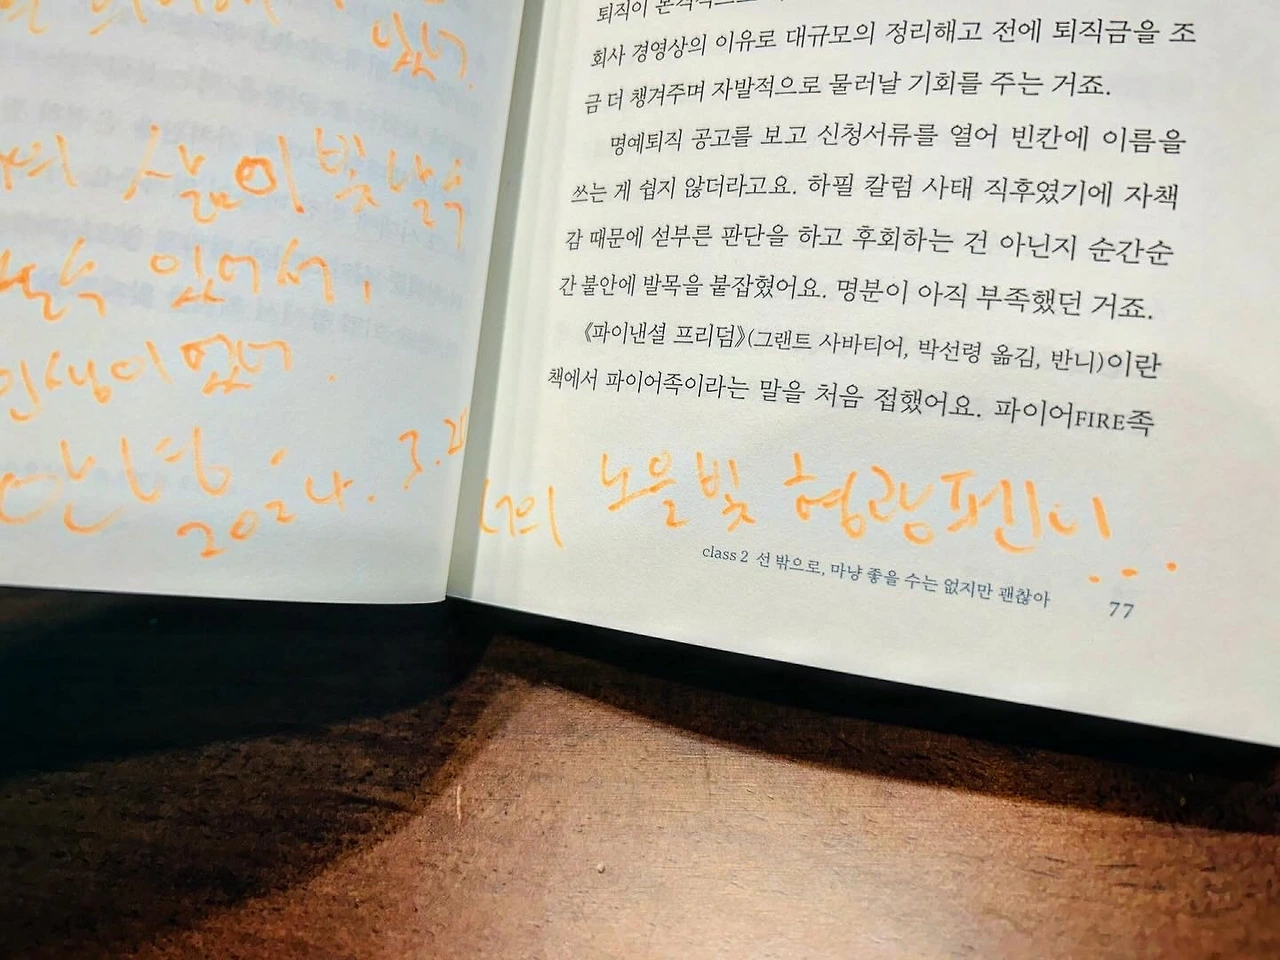 있너.
삶이 빛날 수
날 수 있어서,
인생이 었너.
안녕
2024. 3.2
퇴직이 본격적으로
회사 경영상의 이유로 대규모의 정리해고 전에 퇴직금을 조
금 더 챙겨주며 자발적으로 물러날 기회를 주는 거죠.
명예퇴직 공고를 보고 신청서류를 열어 빈칸에 이름을
쓰는 게 쉽지 않더라고요. 하필 칼럼 사태 직후였기에 자책
감 때문에 섣부른 판단을 하고 후회하는 건 아닌지 순간순
간 불안에 발목을 붙잡혔어요. 명분이 아직 부족했던 거죠.
《파이낸셜 프리덤》(그랜트 사바티어, 박선령 옮김, 반니)이란
책에서 파이어족이라는 말을 처음 접했어요. 파이어FIRE족
나의 노을빛 형광펜이...
class 2 선 밖으로, 마냥 좋을 수는 없지만 괜찮아 77